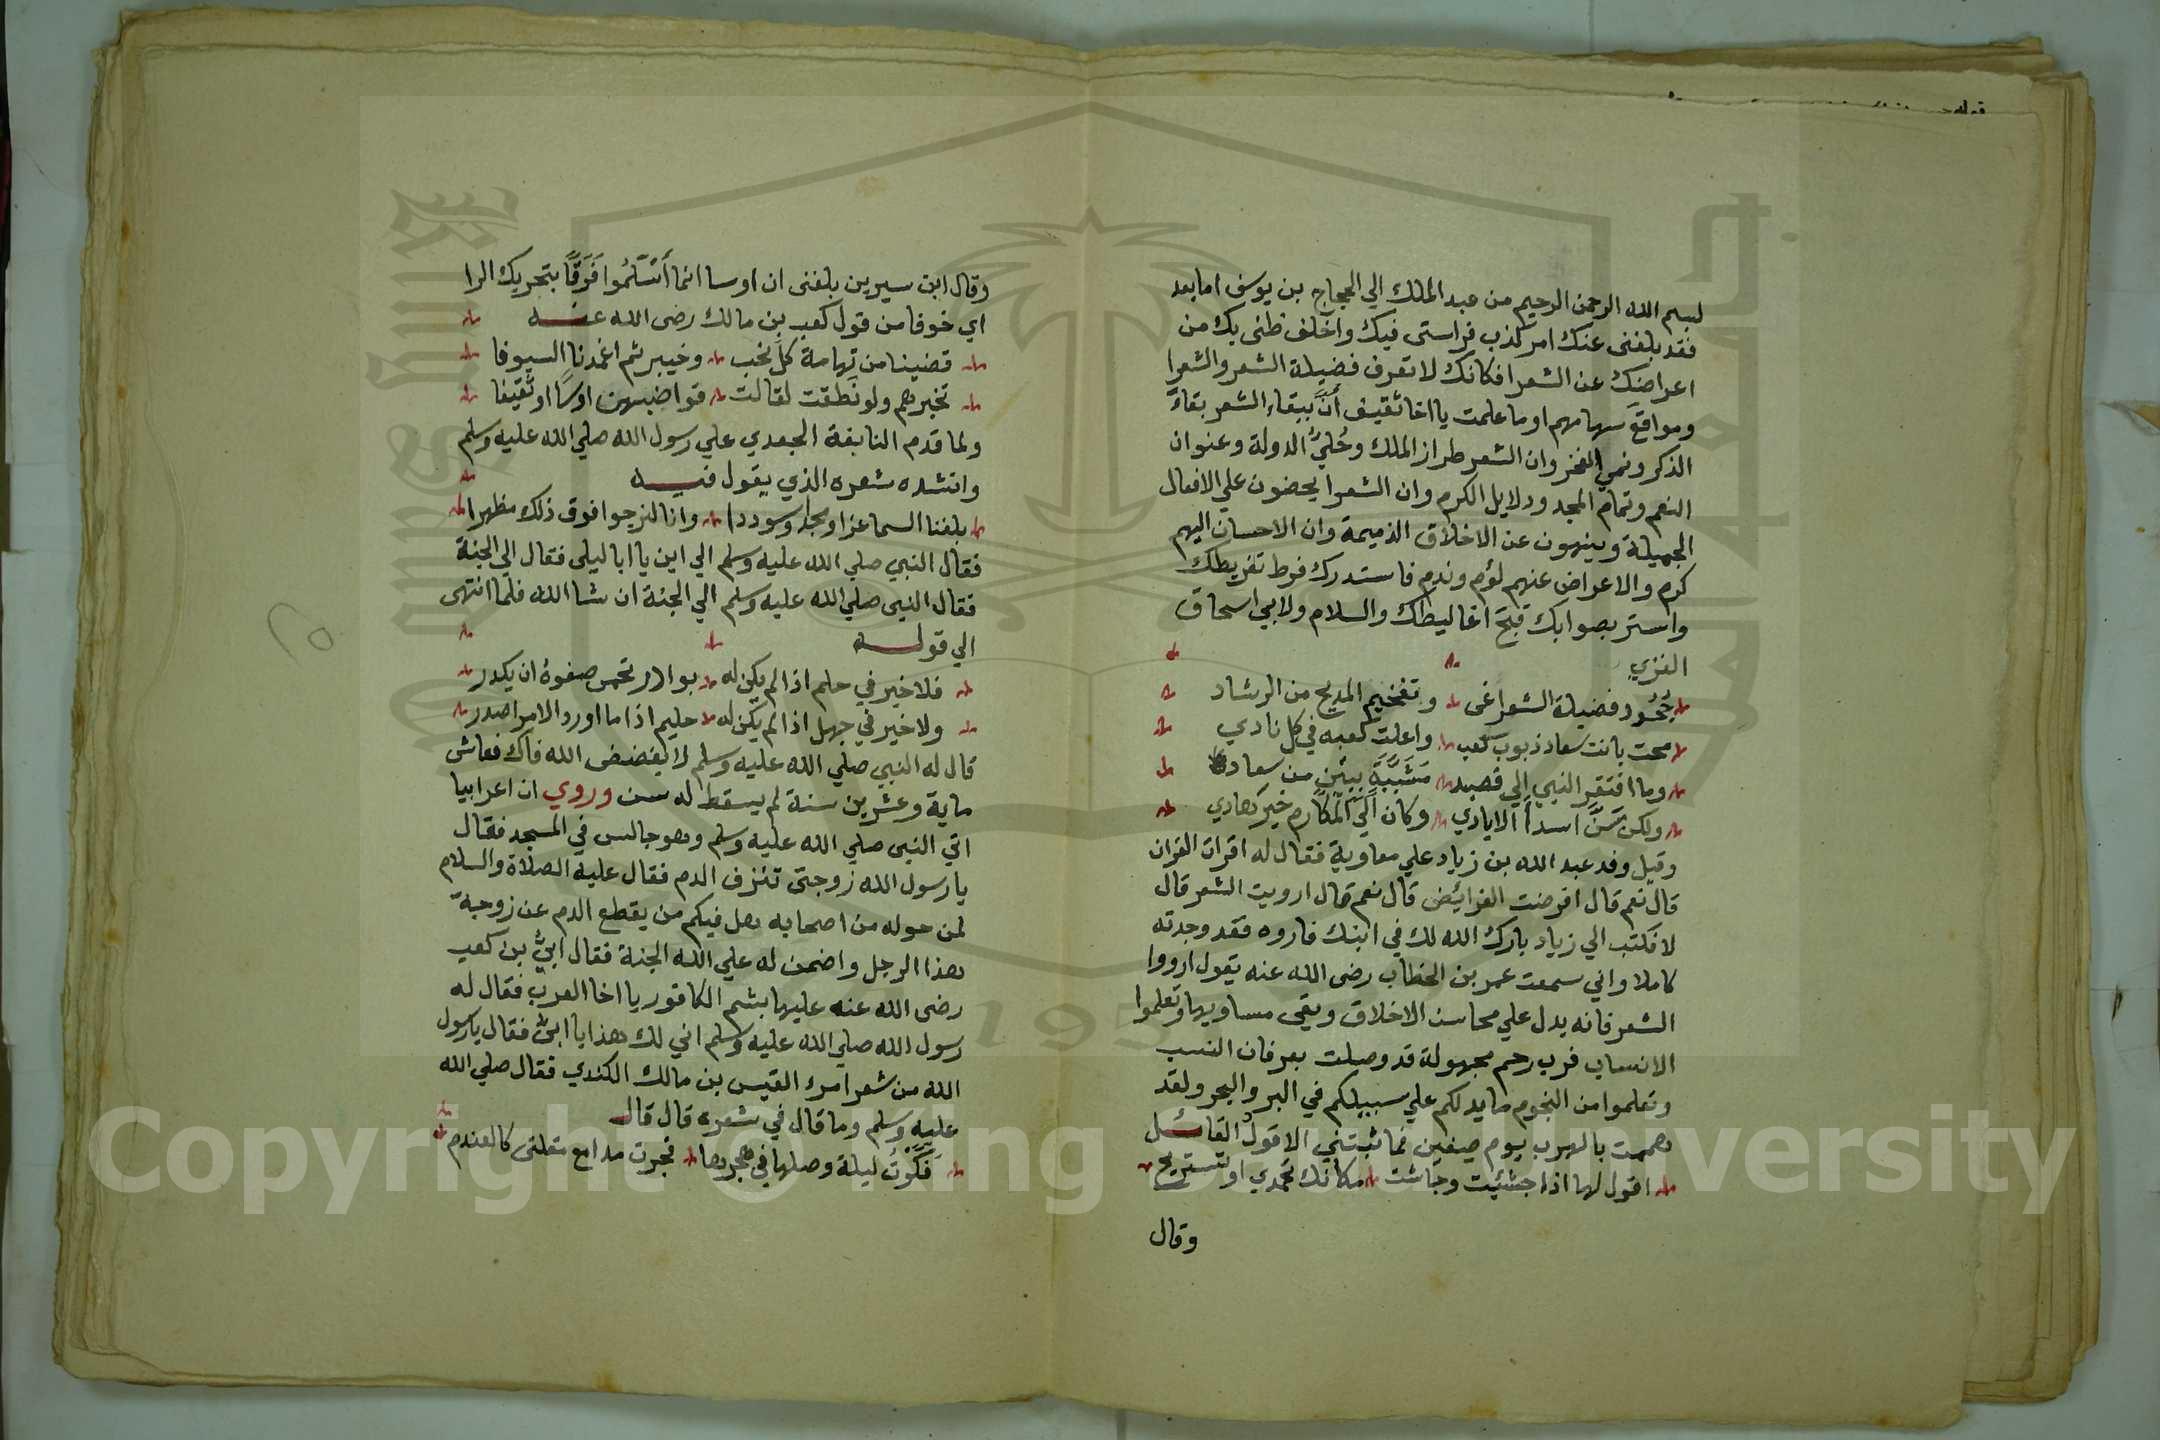 بسم الله الرحمن الرحيم من عبد الملك الي الحجاج بن يوسف اما بعد
فقد بلغني عنك امر كذب فراستي فيك واخلف ظني بك من
اعراضك عن الشعرا فكانك لا تعرف فضيلة الشعر والشعرا
ومواقع سهامهم اوما علمت يا اخا ثقيف أنَّ ببقاء الشعر بقاء
الذكر ونمي الفخر وان الشعر طراز الملك وحُليُّ الدولة وعنوان
النعم وتمام المجد ودلايل الكرم وان الشعرا يحضون علي الافعال
الجميلة وينهون عن الاخلاق الذميمة وان الاحسان اليهم
كرم والاعراض عنهم لؤم وندم فاستدرك فرط تفريطك
واستر بصوابك قبح اغاليطك والسلام ولابي اسحاق
الغزي
جُحُود فضيلة الشعرا غي وتفخيم المديح من الرشاد
محت بانت سعاد ذبوب كعب واعلت كعبه في كل نادي
وما افتقر النبي الي قصيد مَشَبَّبَةٍ ببَيْنٍ من سعاد
ولكن سَنَّ اسداَ الايادي وكان الي المكارم خير هادي
وقيل وفد عبد الله بن زياد علي معاوية فقال له اقرات القران
قال نعم قال افرضت الفرائض قال نعم قال ارويت الشعر قال
لا فكتب الي زياد بارك الله لك في ابنك فاروه فقد وجدته
كاملا واني سمعت عمر بن الخطاب رضى الله عنه يقول ارووا
الشعر فانه يدل علي محاسن الاخلاق ويقى مساويها وتعلموا
الانساب فرب رحم مجهولة قد وصلت بعرفان النسب
وتعلموا من النجوم ما يدلكم علي سبيلكم في البر والبحر ولقد
هممت بالهرب يوم صفين فما ثبتني الا قول القائل
اقول لها اذا جشئيت وجاشت مكانك تحمدي او تستريحي
وقال
وقال ابن سيرين بلغني ان اوسا انما أسْلَمُوا فَرَقًا بتحريك الرا
اي خوفا من قول كعب بن مالك رضى الله عنه
قضينا من تهامة كل نحب وخيبر ثم اغمدنا السيوفا
تخبرهم ولو نطقت لقالت قواضبهن اوسًا او ثقيفا
ولما قدم النابغة الجعدي علي رسول الله صلي الله عليه وسلم
وانشده شعره الذي يقول فيه
بلغنا السما عزا ومجدا وسوددا وانا لنرجوا فوق ذلك مظهرا
فقال النبي صلي الله عليه وسلم الي اين يا ابا ليلي فقال الي الجنة
فقال النبي صلي الله عليه وسلم الي الجنة ان شا الله فلما انتهى
الي قوله
فلا خير في حلم اذا لم يكن له بوادر تحمى صفوهُ ان يكدر
ولا خير في جهل اذا لم يكن له حليم اذا ما اورد الامر اصدر
قال له النبي صلي الله عليه وسلم لا يفضض الله فاك فعاش
ماية وعشرين سنة لم يسقط له سن وروي ان اعرابيا
اتي النبى صلي الله عليه وسلم وهو جالس في المسجد فقال
يا رسول الله زوجتى تنزف الدم فقال عليه الصلاة والسلام
لمن حوله من اصحابه هل فيكم من يقطع الدم عن زوجة
هذا الرجل واضمن له علي الله الجنة فقال ابيُّ بن كعب
رضى الله عنه عليها بشم الكافور يا اخا العرب فقال له
رسول الله صلي الله عليه وسلم اني لك هذا يا ابيُّ فقال يا رسول
الله من شعر امرء القيس بن مالك الكندي فقال صلي الله
عليه وسلم وما قال في شعره قال قال
فَكَّرْتُ ليلة وصلها في هجرها فجرت مدامع مقلتى كالعندم
Copyright © King Saud University
1957